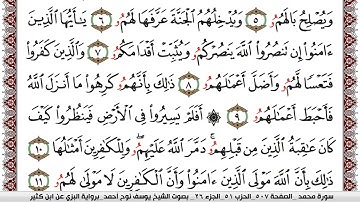 وَيُصْلِحُ بَالَهُمُۥ ٥ وَيُدْخِلُهُمُ ٱلْجَنَّةَ عَرَّفَهَا لَهُمُۥ ٦ يَٰٓأَيُّهَا ٱلَّذِينَ
ءَامَنُوا إِن تَنصُرُوا ٱللَّهَ يَنصُرْكُمُۥ وَيُثَبِّتْ أَقْدَامَكُمُۥ ٧ وَٱلَّذِينَ كَفَرُوا
فَتَعْسًا لَّهُمُۥ وَأَضَلَّ أَعْمَٰلَهُمُۥ ٨ ذَٰلِكَ بِأَنَّهُمُۥ كَرِهُوا مَا أَنزَلَ ٱللَّهُ
فَأَحْبَطَ أَعْمَٰلَهُمُۥ ٩ أَفَلَمْ يَسِيرُوا فِي ٱلْأَرْضِ فَيَنظُرُوا كَيْفَ
كَانَ عَٰقِبَةُ ٱلَّذِينَ مِن قَبْلِهِمُۥ دَمَّرَ ٱللَّهُ عَلَيْهِمُۥ وَلِلْكَٰفِرِينَ أَمْثَٰلُهَا ١٠
ذَٰلِكَ بِأَنَّ ٱللَّهَ مَوْلَى ٱلَّذِينَ ءَامَنُوا وَأَنَّ ٱلْكَٰفِرِينَ لَا مَوْلَىٰ لَهُمُۥ ١١
سورة محمد_الصفحة ٥٠٧_الحزب ٥١_الجزء ٢٦_ بصوت الشيخ يوسف نوح احمد_برواية البزي عن ابن كثير